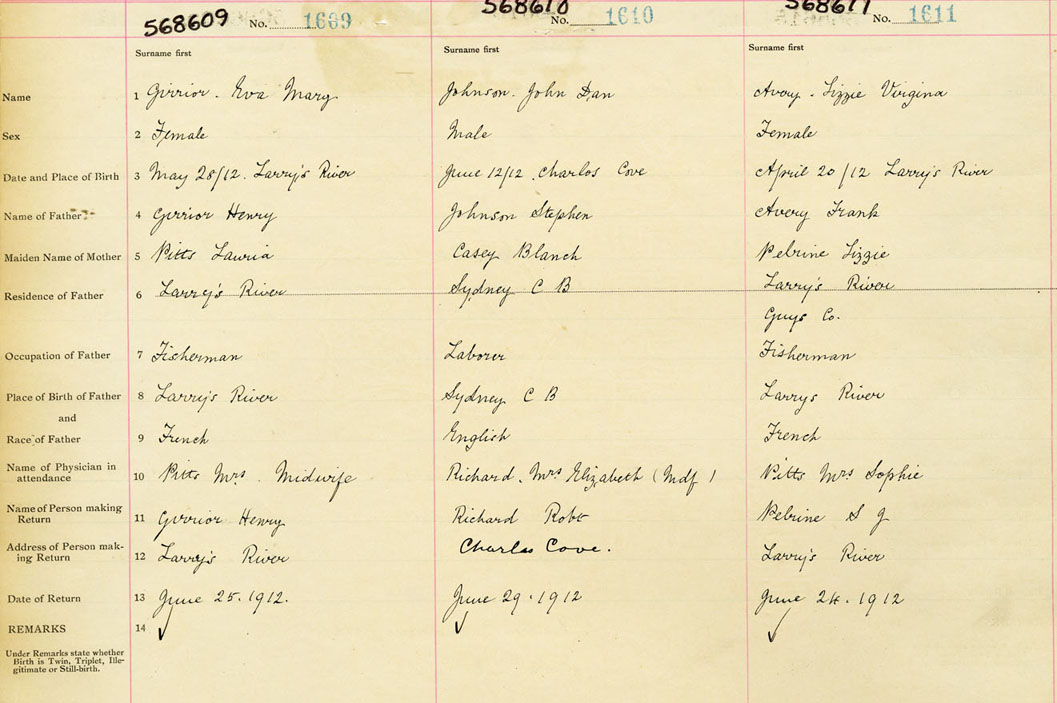 568609 No. 1609 568610 No. 1610 568611 No. 1611
Surname first Surname first Surname first
Name 1 Girrior. Eva Mary Johnson. John Dan Avery. Lizzie Virgina
Sex 2 Female Male Female
Date and Place of Birth 3 May 28/12. Larry's River June 12/12. Charlos Cove April 20/12 Larry's River
Name of Father 4 Girrior Henry Johnson Stephen Avery Frank
Maiden Name of Mother 5 Pitts Lauria Casey Blanch Pelrine Lizzie
Residence of Father 6 Larry's River Sydney C B Larry's River
Guys Co.
Occupation of Father 7 Fisherman Laborer Fisherman
Place of Birth of Father 8 Larry's River Sydney C B Larrys River
and
Race of Father 9 French English French
Name of Physician in
attendance 10 Pitts Mrs. Midwife Richard. Mrs Elizabeth (Mdf) Pitts Mrs Sophie
Name of Person making
Return 11 Girrior Henry Richard Robt Pelrine S J
Address of Person mak-
ing Return 12 Larry's River Charlos Cove. Larry's River
Date of Return 13 June 25. 1912. June 29. 1912 June 24. 1912
REMARKS 14
Under Remarks state whether
Birth is Twin, Triplet, Ille-
gitimate or Still-birth.